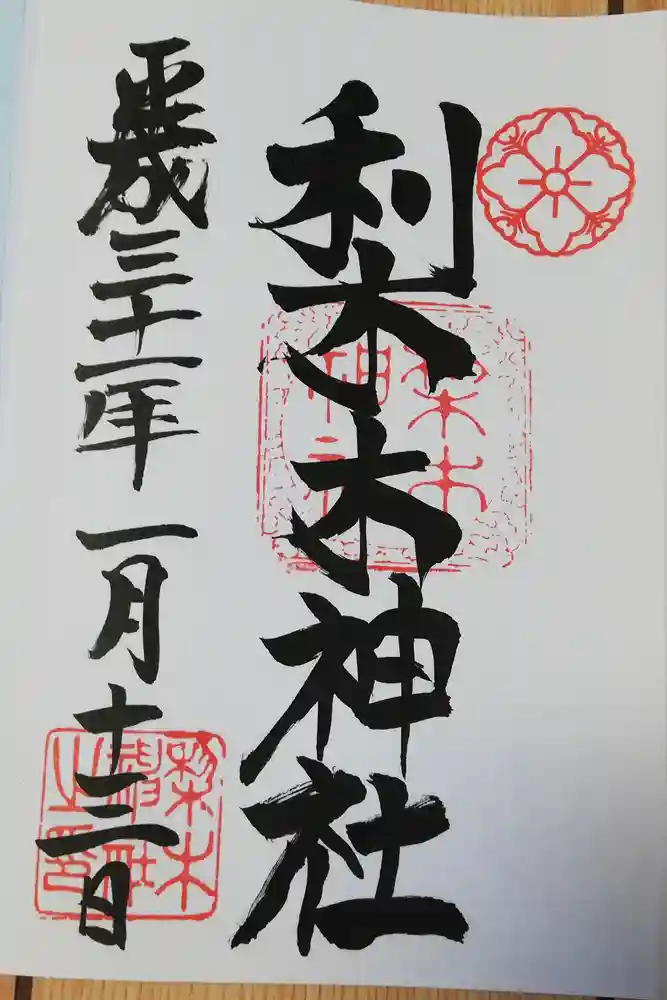 梨木神社
平成三十一年一月十三日
梨木神社
梨木神社之印